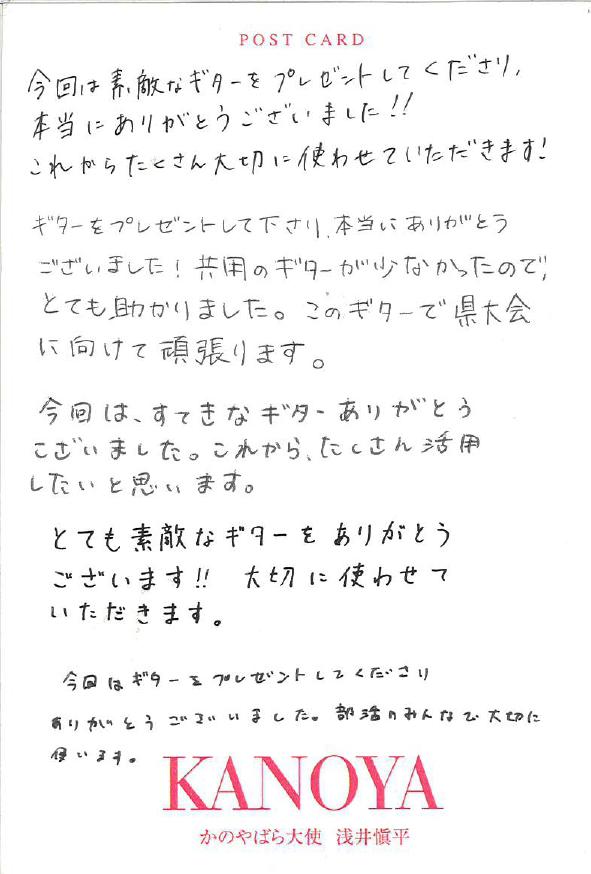 POST CARD
今回は素敵なギターをプレゼントしてくださり、
本当にありがとうございました!!
これからたくさん大切に使わせていただきます!
ギターをプレゼントして下さり、本当にありがとう
ございました!共用のギターが少なかったので、
とても助かりました。このギターで県大会
に向けて頑張ります。
今回は、すてきなギターありがとう
ございました。これから、たくさん活用
したいと思います。
とても素敵なギターをありがとう
ございます!! 大切に使わせて
いただきます。
今回はギターをプレゼントしてくださり
ありがとうございました。部活のみんなで大切に
使います。
KANOYA
かのやばら大使 浅井愼平